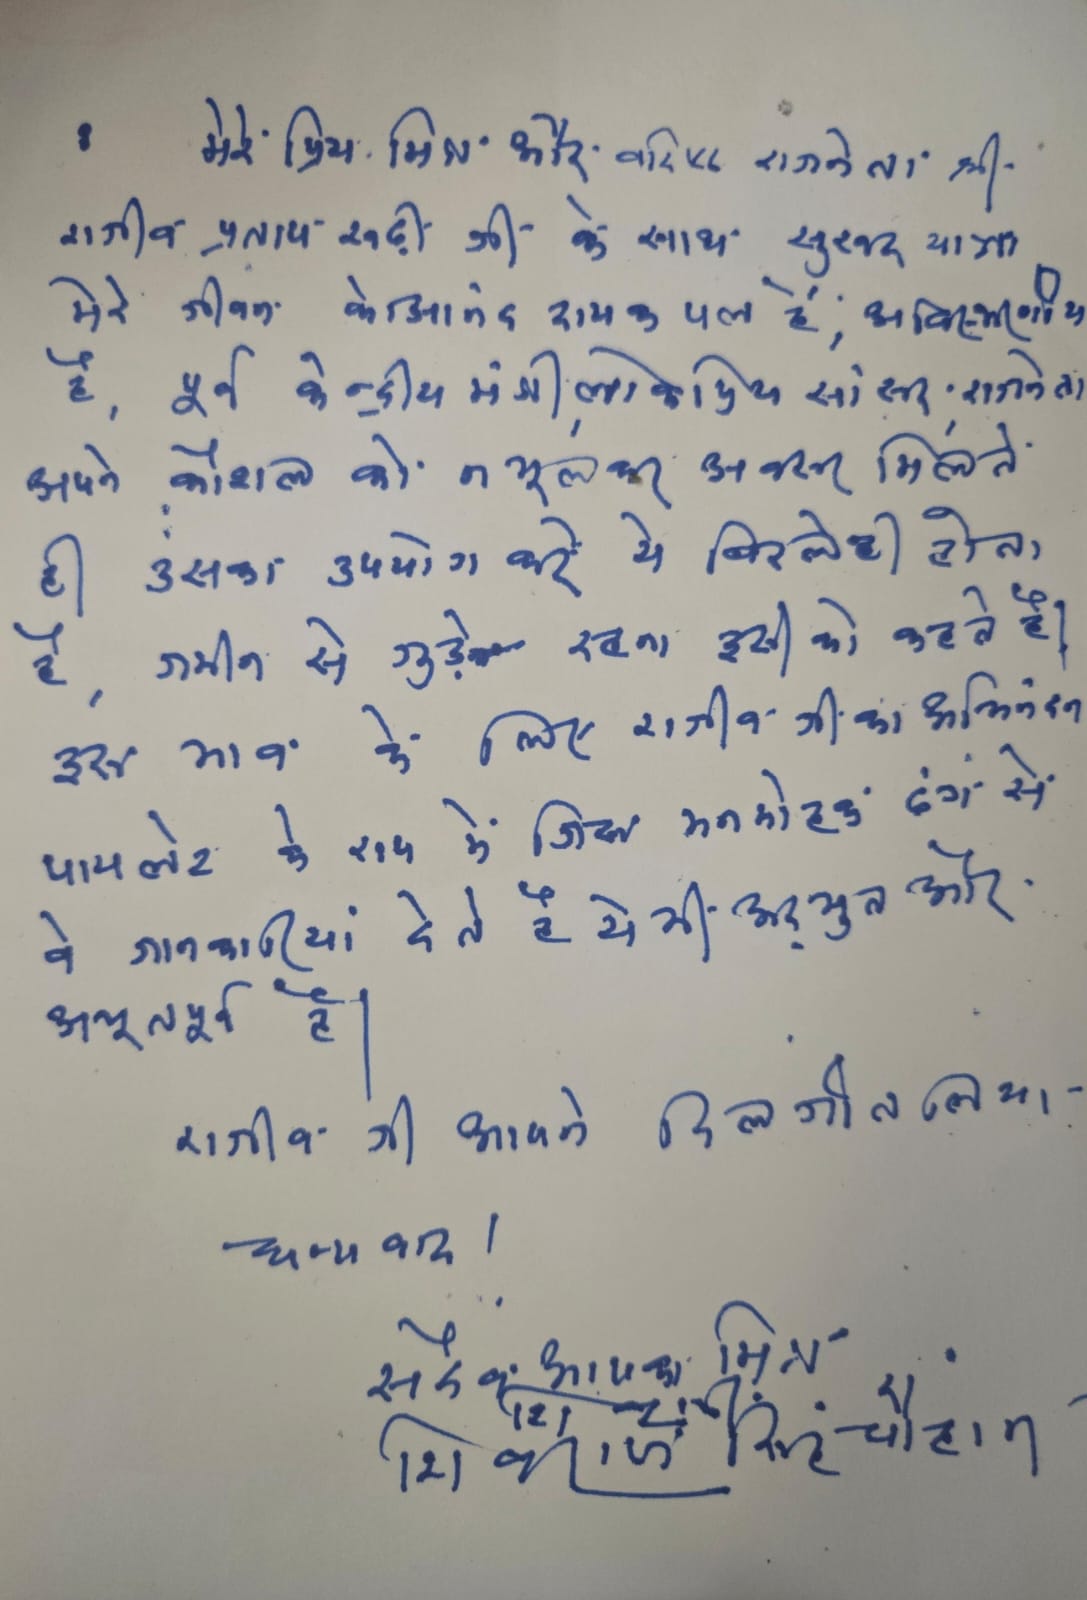 मेरे प्रिय मित्र और वरिष्ठ राजनेता श्री
राजीव प्रताप रूडी जी के साथ सुखद यात्रा
मेरे जीवन के आनंद दायक पल हैं, अविस्मरणीय
है, पूर्व केन्द्रीय मंत्री, लोकप्रिय सांसद, राजनेता
अपने कौशल को न भूलकर अवसर मिलते
ही उसका उपयोग करे ये विरले ही होता
है, जमीन से जुड़े रहना इसी को कहते हैं।
इस भाव के लिए राजीव जी का अभिनंदन
पायलेट के रूप में जिस मनमोहक ढंग से
वे जानकारियां देते है ये भी अद्भुत और
अभूतपूर्व है।
राजीव जी आपने दिल जीत लिया
धन्यवाद।
सदैव आपका मित्र
शिवराज सिंह चौहान